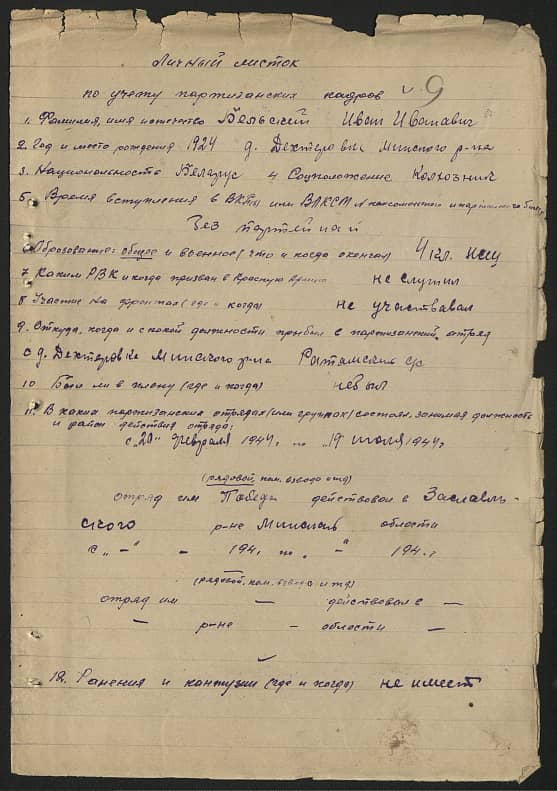 Личный листок
по учету партизанских кадров
9
1. Фамилия, имя и отчество Бельский Иван Иванавич
2. Год и место рождения 1924 д. Дехтеровка Минского р-на
3. Национальность Беларус 4 Соцположение Колхозник
5. Время вступления в ВКПб или ВЛКСМ № комсомол и партийного бил.
Безпартейнай
6. Образование: общее и военное (что и когда окончил) 4 кл.
7 Каким РВК и когда призван в Красную армию не служил
8 Участие на фронтах (где и когда) не участвавал
9. Откуда, когда и с какой должности прибыл в партизанский отряд
с д. Дехтеровка Минского р-на Ратамский с/с
10 Был ли в плену (где и когда) не был
11. В каких партизанских отрядах (или группах) состоял, занимая должность
и район действия отряда:
с „20" февраля 1944 г. по „19" июля 1944 г.
(рядовой, ком. взвода и тд)
отряд им Победы действовал в Заславль-
ского р-не Минской области
с „ — " — 194 г. по „ — " 194 г.
(рядовой, ком. взвода и тд)
отряд им — действовал в —
— р-не — области —
12. Ранения и кантузии (где и когда) не имеет